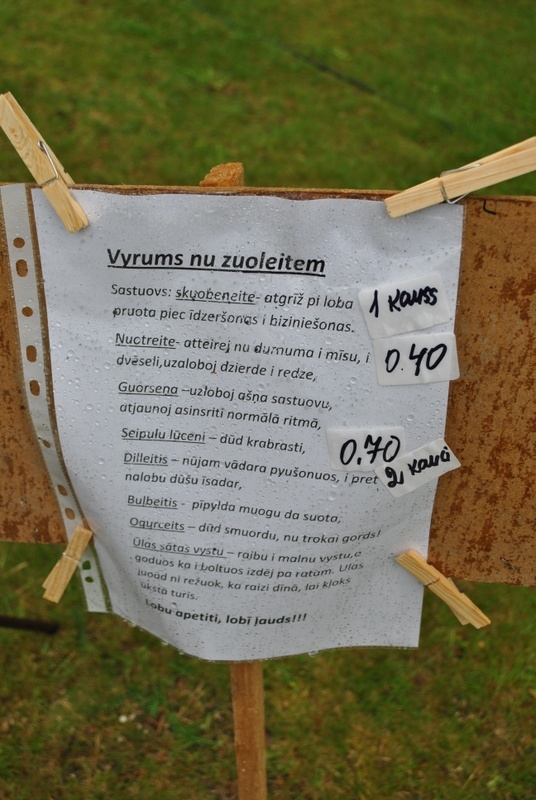 Vyrums nu zuoleitem
Sastuovs: skuobeneite- atgrīž pi loba
pruota piec īdzeršonas i biziniešonas.
1 kauss
Nuotreite- atteirej nu durnuma i mīsu, i
dvēseli,uzaloboj dzierde i redze,
0.40
Guorseņa –uzloboj ašņa sastuovu,
atjaunoj asinsriti normālā ritmā,
Seipulu lūceni – dūd krabrasti,
0.70
Dilleitis – nūjam vādara pyušonuos, i pret
nalobu dūšu īsadar,
2 kausi
Buļbeitis - pīpylda muogu da suota,
Ogurceits – dūd smuordu, nu trokai gords!
Ūlas sātas vystu – raibu i malnu vystu,a
goduos ka i boltuos izdēj pa ratam. Ūlas
juoād ni režuok, ka raizi dīnā, lai kļoks
ūkstā turīs.
Lobu apetiti, lobī ļauds!!!